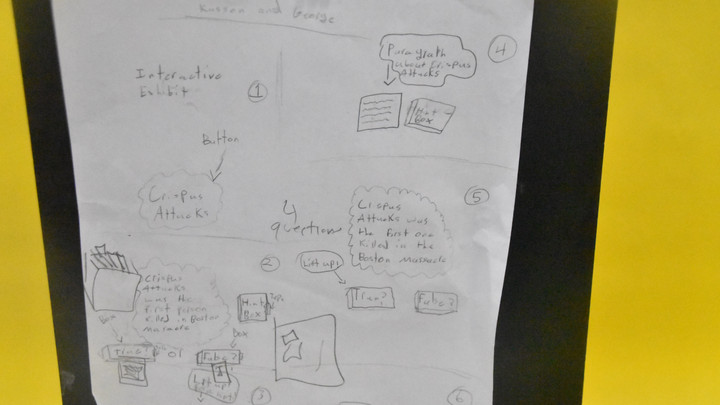 and George
Interactive
Exhibit
1
Button
Crispus
Attucks
Paragraph
about Crispus
Attucks
4
Hint
Box
4
question
Crispus
Attucks was
the first one
killed in the
Boston massacre
5
Lift ups
True?
False?
2
Crispus
Attucks
was the
first person
killed in Boston
massacre
Hint
Box
Box
True?
or
Box
False?
Lift up
3
6